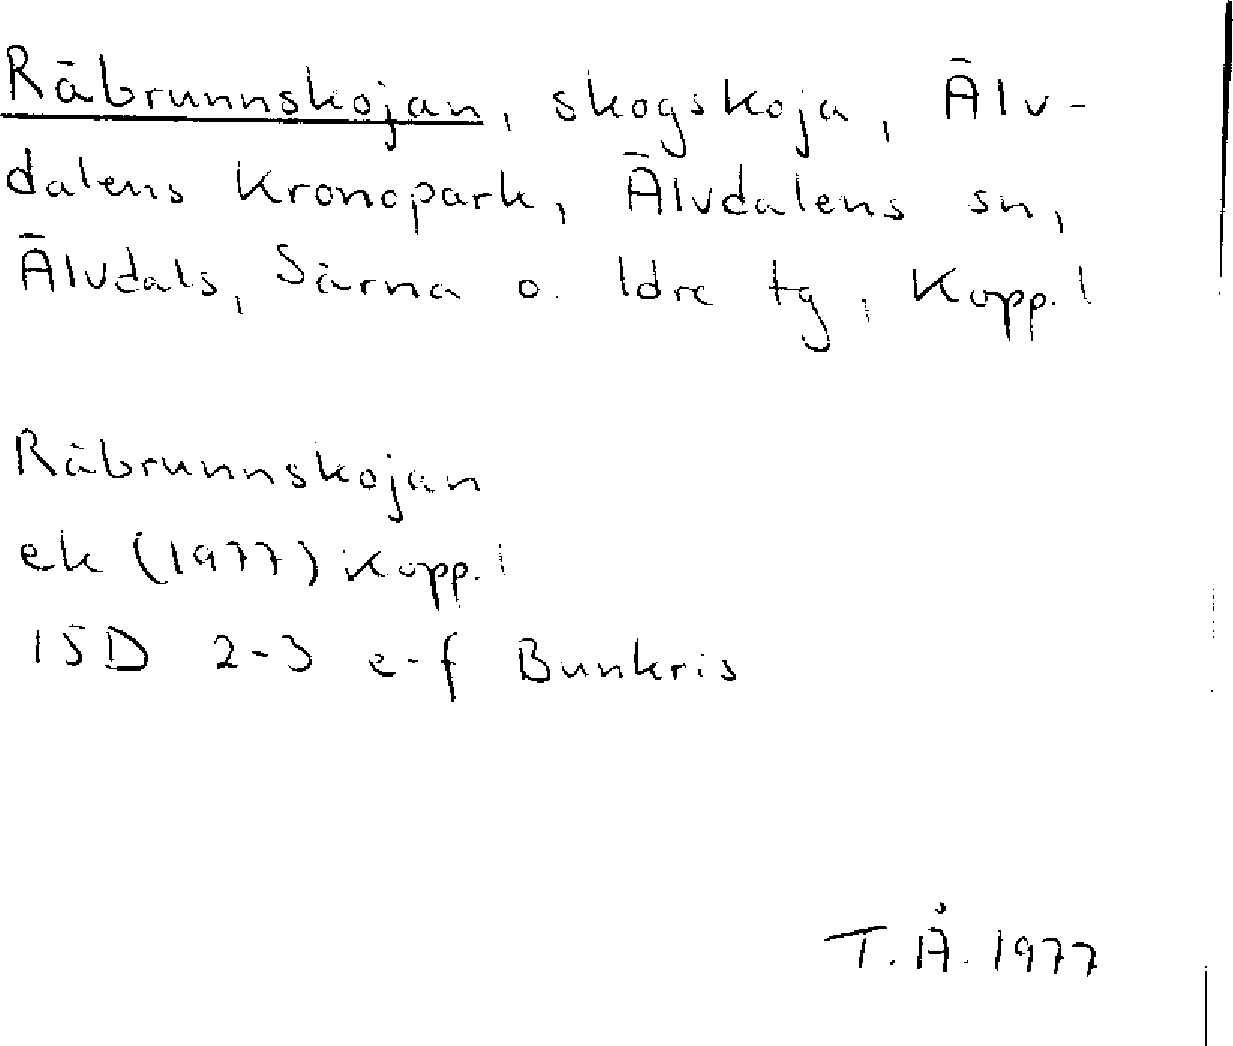 Räbrunnskojan, skogskoja, Älv-
dalens kronopark, Älvdalens sn,
Älvdals, Särna o. Idre tg, Kopp. l
Räbrunnskojan
ek (1977) Kopp. l
15D 2-3 e-f Bunkris
T. Å. 1977